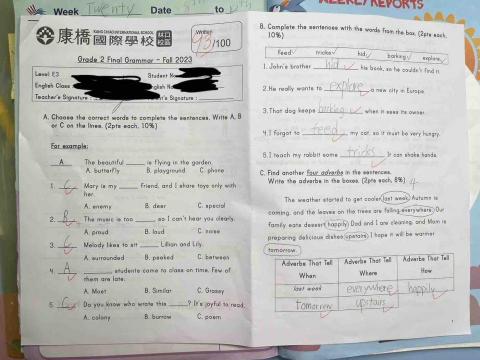 Week Twenty Date
WEEKLY REPORTS
康橋 國際學校 林口校區
KANG CHIAO INTERNATIONAL SCHOOL
Written
93/100
Grade 2 Final Grammar – Fall 2023
Level: E3
Student No
English Class
English
Teacher's Signature :
Signature :
A. Choose the correct words to complete the sentences. Write A, B
or C on the lines. (2pts each, 10%)
For example:
A The beautiful ____ is flying in the garden.
A. butterfly B. playground C. phone
1. C Mary is my ____ friend, and I share toys only with
her.
A. enemy B. deer C. special
2. B The music is too ____, so I can't hear you clearly.
A. proud B. loud C. noise
3. C Melody likes to sit ____ Lillian and Lily.
A. surrounded B. peeked C. between
4. A ____ students come to class on time. Few of
them are late.
A. Most B. Similar C. Grassy
5. C Do you know who wrote this ____? It's joyful to read.
A. colony B. burrow C. poem
B. Complete the sentences with the words from the box. (2pts each,
10%)
feed tricks hid barking explore
1. John's brother hid his book, so he couldn't find it.
2. He really wants to explore a new city in Europe.
3. That dog keeps barking when it sees its owner.
4. I forgot to feed my cat, so it must be very hungry.
5. I teach my rabbit some tricks. It can shake hands.
C. Find another four adverbs in the sentences.
Write the adverbs in the boxes. (2pts each, 8%)
The weather started to get cooler last week. Autumn is
coming, and the leaves on the trees are falling everywhere. Our
family eats dessert happily. Dad and I are cleaning, and Mom is
preparing delicious dishes upstairs. I hope it will be warmer
tomorrow.
Adverbs That Tell When Adverbs That Tell Where Adverbs That Tell How
last week everywhere happily
tomorrow upstairs